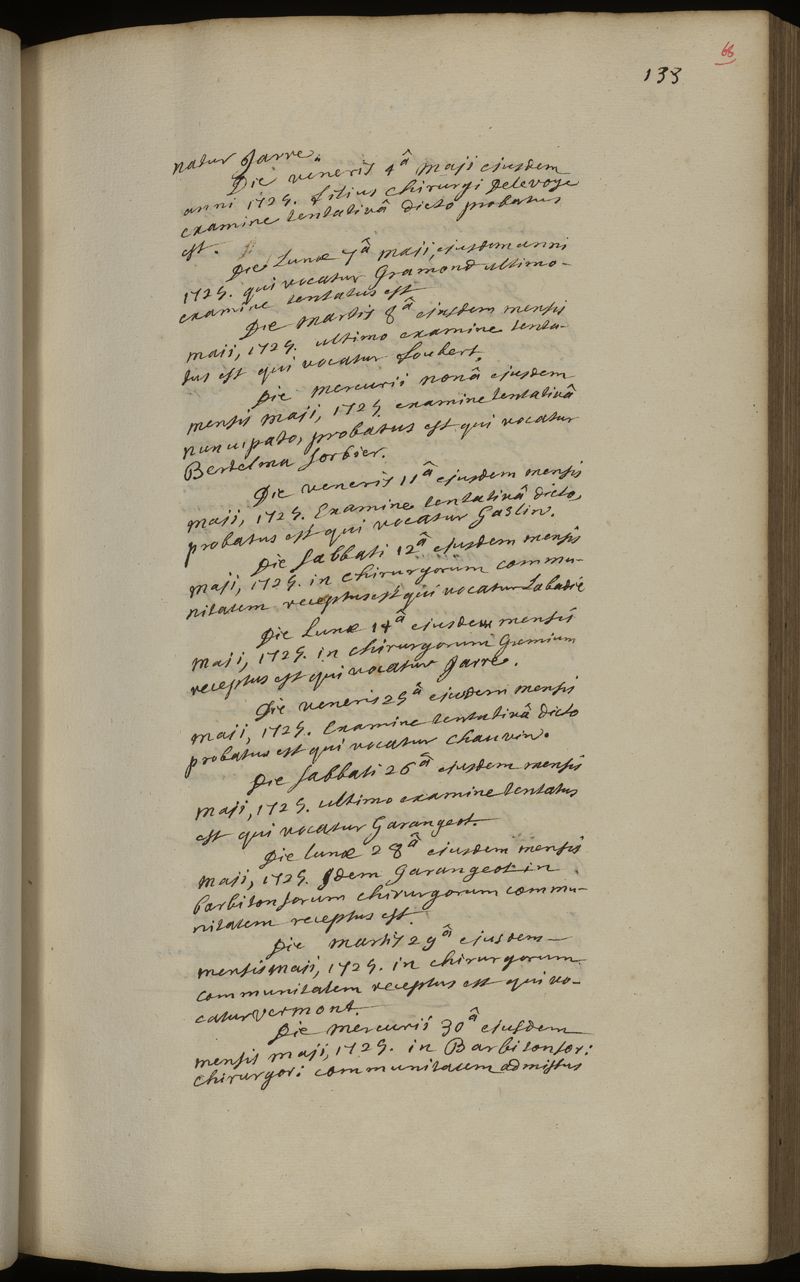 68
133
natur Jarre.
Die veneris 4â maji ejusdem
anni 1725. filius chirurgi Delevoye
examine tentativâ dicto probatus
est.
Die Lunæ 7â maji, ejusdem anni
1725. qui vocatur Gramond ultimo-
examine tentatus est
Die martis 8â ejusdem mensis
maii, 1725. ultimo examine tenta-
tus est qui vocatur Joubert.
Die mercurii nonâ ejusdem
mensis maji, 1725 examine tentativâ
nuncupato, probatus est qui vocatur
Bertelma Sorbier.
Die veneris 11â ejusdem mensis
maji, 1725. Examine tentativâ dicto,
probatus est qui vocatur Gaslin.
Die Sabbati 12â ejusdem mensis
maji, 1725. in chirurgorum commu-
nitatem receptus est qui vocatur Labadie
Die Lunæ 14â ejusdem mensis
maji, 1725. in chirurgorum Gremium
receptus est qui vocatur Jarre.
Die veneris 25â ejusdem mensis
maji, 1725. Examine tentativâ dicto
probatus est qui vocatur Chauvin.
Die Sabbati 26â ejusdem mensis
maji, 1725. ultimo examine tentatus
est qui vocatur Garangeot.
Die lunæ 28â ejusdem mensis
maji, 1725. Idem Garangeot in
barbitonsorum chirurgorum commu-
nitatem receptus est.
Die martis 29â ejusdem-
mensis maji, 1725. in chirurgorum
communitatem receptus est qui vo-
catur Vermont.
Die mercurii 30â ejusdem
mensis maji, 1725. in Barbitonsor:
chirurgor: communitatem admissus